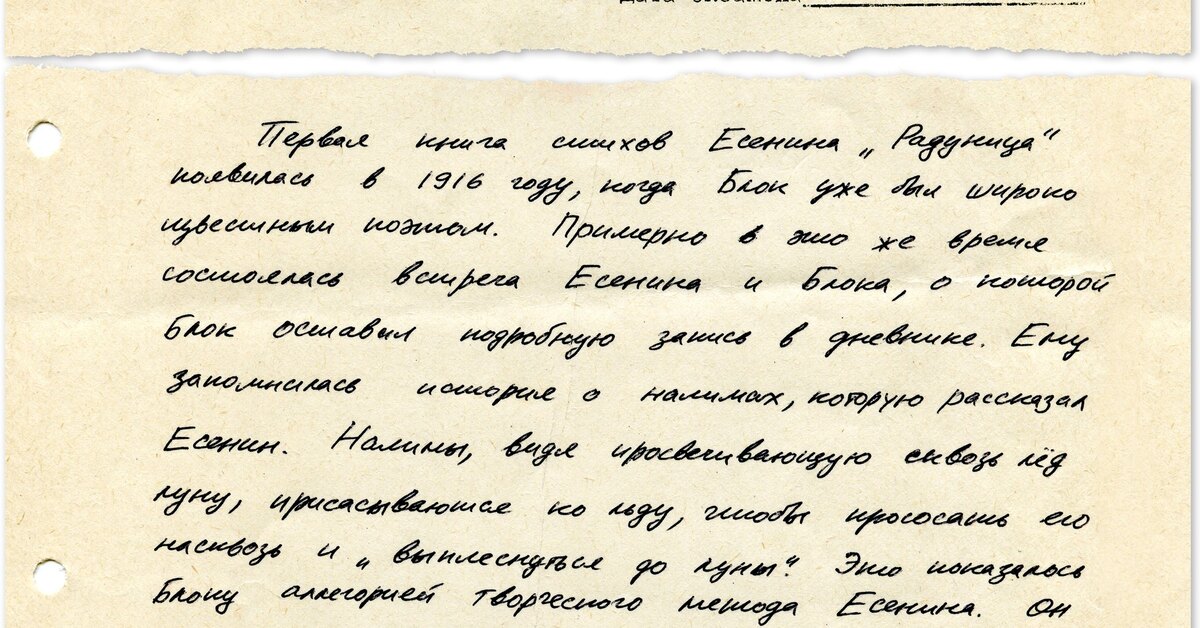 Первая книга стихов Есенина „Радуница"
появилась в 1916 году, когда Блок уже был широко
известным поэтом. Примерно в это же время
состоялась встреча Есенина и Блока, о которой
Блок оставил подробную запись в дневнике. Ему
запомнилась история о налимах, которую рассказал
Есенин. Налимы, видя просвечивающую сквозь лёд
луну, присасываются ко льду, чтобы прососать его
насквозь и „выплеснуться до луны". Это показалось
Блоку аллегорией творческого метода Есенина. Он